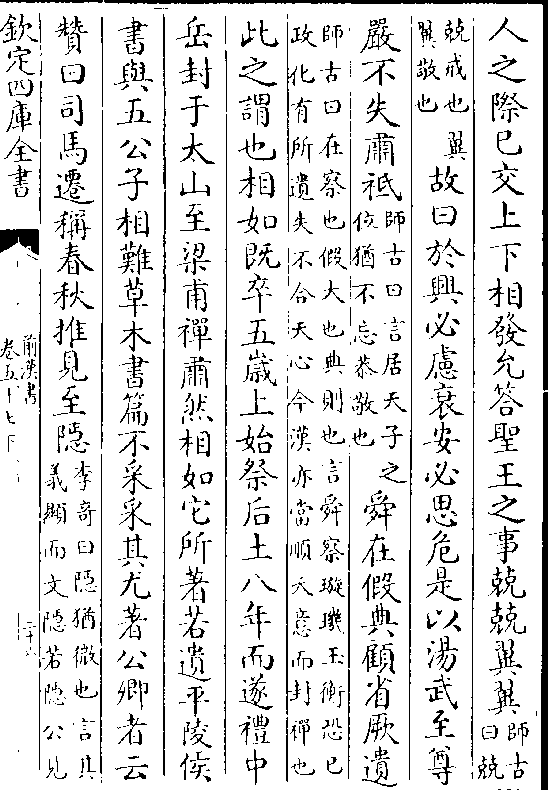 人之際已交上下相發允答聖王之事兢兢翼翼師古曰兢
兢戒也翼敬也 翼故曰於興必慮衰安必思危是以湯武至尊
嚴不失肅祗師古曰言居天子之位猶不忘恭敬也舜在假典顧省厥遺
師古曰在察也假大也典則也言舜察璇璣玉衡恐已政化有所遺失不合天心今漢亦當順天意而封禪也
此之謂也相如既卒五歲上始祭后土八年而遂禮中
岳封于太山至梁甫禪肅然相如它所著若遺平陵侯
書與五公子相難草木書篇不采采其尤著公卿者云
贊曰司馬遷稱春秋推見至隱李奇曰隱猶微也言其義顯而文隱若隱公見
欽定四庫全書
前漢書
卷五十七下
二十六